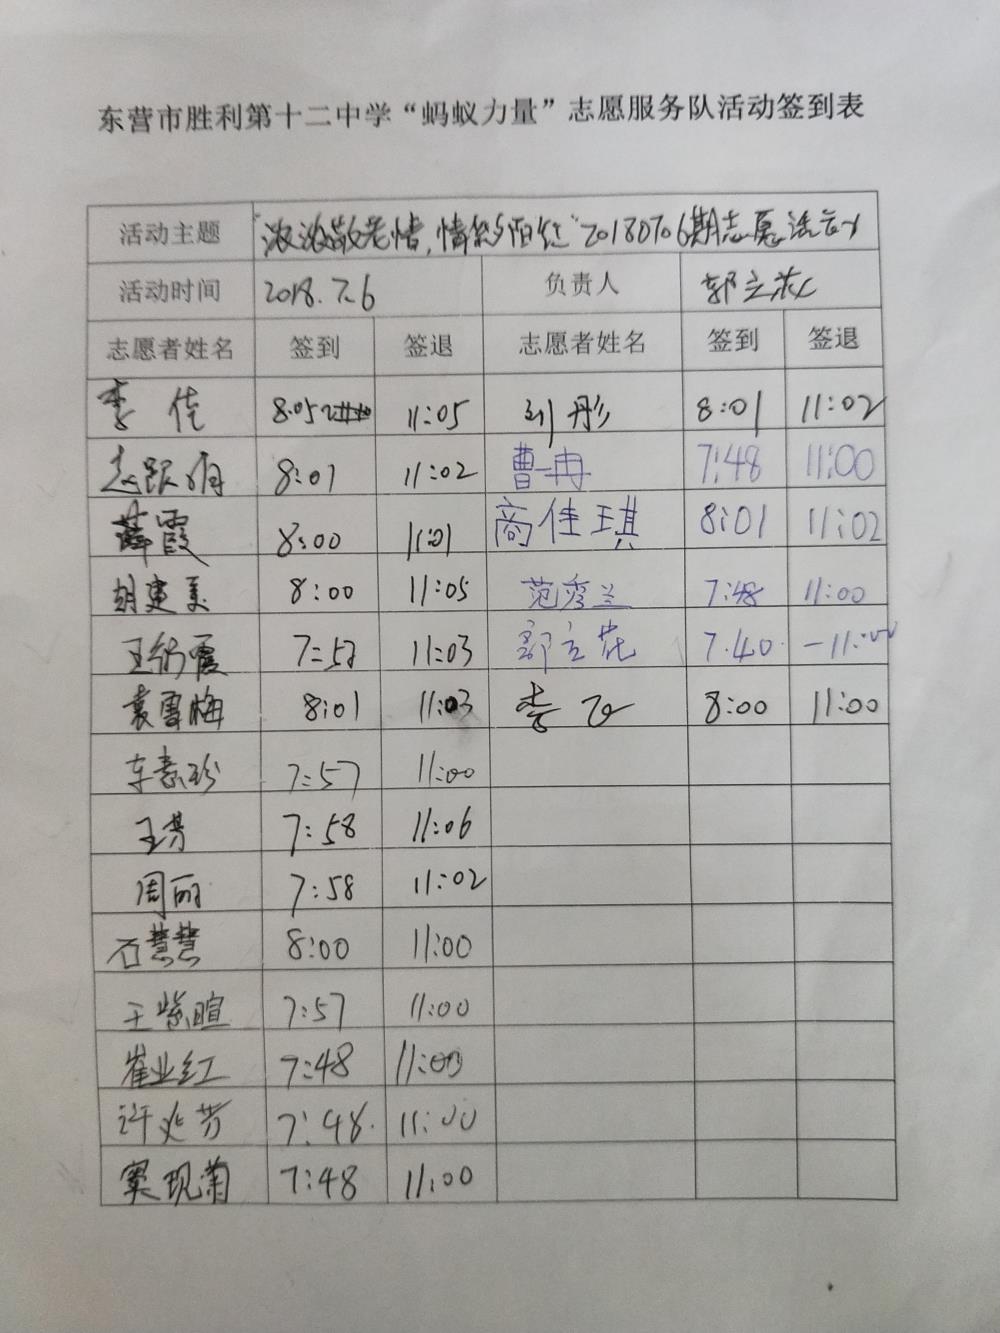 东营市胜利第十二中学“蚂蚁力量”志愿服务队活动签到表
活动主题 “浓浓敬老情，情系夕阳红”20180706期志愿活动
活动时间 2018.7.6 负责人 郭立花
志愿者姓名 签到 签退 志愿者姓名 签到 签退
李佳 8:05 11:05 刘彤 8:01 11:02
8:01 11:02 曹冉 7:48 11:00
薛霞 8:00 11:01 商佳琪 8:01 11:02
胡建美 8:00 11:05 范秀兰 7:48 11:00
王霞 7:57 11:03 郭立花 7.40 -11:00
袁雪梅 8:01 11:03 李飞 8:00 11:00
7:57 11:00
王芳 7:58 11:06
周丽 7:58 11:02
石慧慧 8:00 11:00
王紫暄 7:57 11:00
崔业红 7:48 11:00
许芳 7:48. 11:00
窦现菊 7:48 11:00